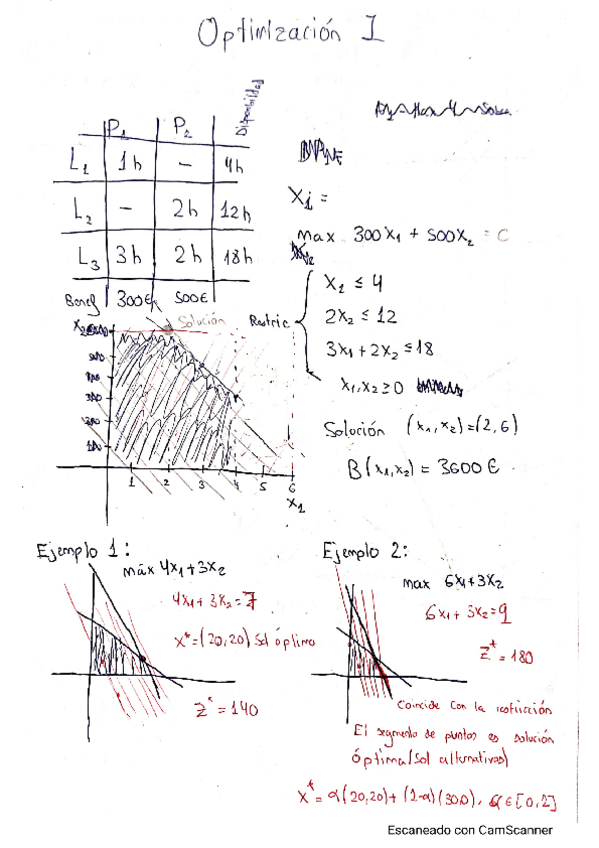 Optimización I
P1 P2 Disponibilidad
L1 1h - 4h
L2 - 2h 12h
L3 3h 2h 18h
Benef 300€ 500€
Xi =
Max 300X1 + 500X2 = C
Restric
X1 ≤ 4
2X2 ≤ 12
3X1 + 2X2 ≤ 18
X1, X2 ≥ 0
Solución (X1, X2) = (2,6)
B(X1, X2) = 3600 €
X2
Solución
1 2 3 4 5 6
X1
Ejemplo 1:
máx 4X1 + 3X2
4X1 + 3X2 = Z
X* = (20,20) Sol óptimo
Z* = 140
Ejemplo 2:
max 6X1 + 3X2
6X1 + 3X2 = 9
Z* = 180
Coincide con la
El segmento de puntos es solución
óptima (Sol alternativas)
X* = α(20,20) + (1-α)(30,0), α ∈ [0,1]
Escaneado con CamScanner